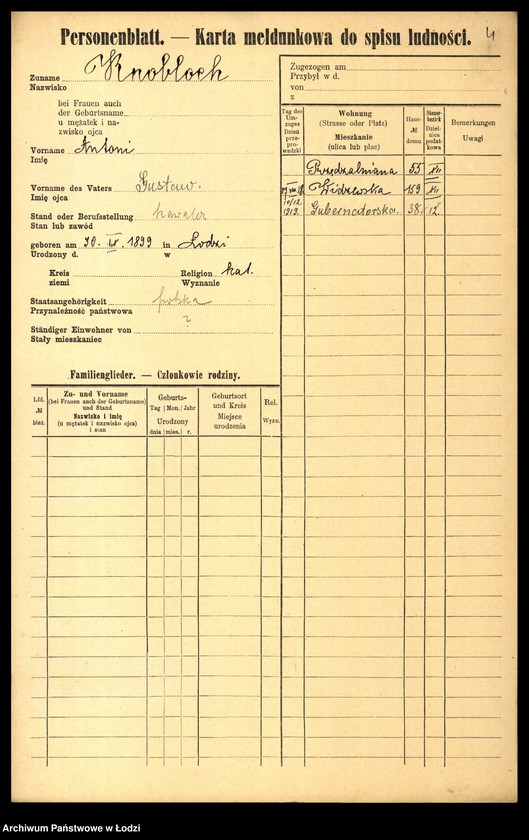 Personenblatt. — Karta meldunkowa do spisu ludności.
4
Zuname Knobloch
Nazwisko
bei Frauen auch
der Geburtsname
u mężatek i na-
zwisko ojca
Vorname Antoni
Imię
Vorname des Vaters Gustaw.
Imię ojca
Stand oder Berufsstellung kawaler
Stan lub zawód
geboren am 30. IX. 1899 in Łodzi
Urodzony d. w
Kreis Religion kat.
ziemi Wyznanie
Staatsangehörigkeit polska
Przynależność państwowa
?
Ständiger Einwohner von
Stały mieszkaniec
Familienglieder. — Członkowie rodziny.
Lfd. № bież.
Zu- und Vorname
(bei Frauen auch der Geburtsname)
und Stand
Nazwisko i imię
(u mężatek i nazwisko ojca)
i stan
Geburts-
Tag Mon. Jahr
Urodzony
dnia mies. r.
Geburtsort
und Kreis
Miejsce
urodzenia
Rel.
Wyzn.
Zugezogen am
Przybył w d.
von
z
Tag des
Um-
zuges
Dzień
prze-
prowadzki
Wohnung
(Strasse oder Platz)
Mieszkanie
(ulica lub plac)
Haus-
№
domu
Steuer-
bezirk
Dziel-
nica
podat-
kowa
Bemerkungen
Uwagi
Przędzalniana 55 XII
Widzewska 159 XII
10/12. 1919. Gubernatorska. 38. 12.
Archiwum Państwowe w Łodzi